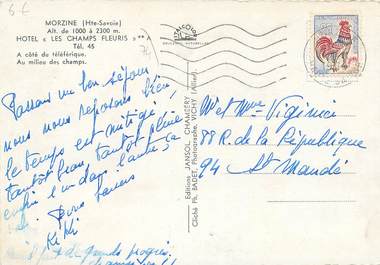 MORZINE (Hte-Savoie)
Alt. de 1000 à 2300 m.
HOTEL « LES CHAMPS FLEURIS » **A
Tél. 45
A côté du téléférique.
Au milieu des champs.
Passons un bon séjour
nous nous reposons bien,
le temps est mitigé,
tantôt beau, tantôt pluie
enfin
Bons baisers
Kiki
de grands progrès
Editions JANSOL, CHAMBÉRY
Cliché Ph. BADET, Photographe, VICHY (Allier)
M et Mme Viginier
88 R. de la République
94 St Mandé